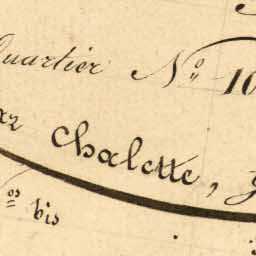 Quartier No 10
Chalette,
os bis